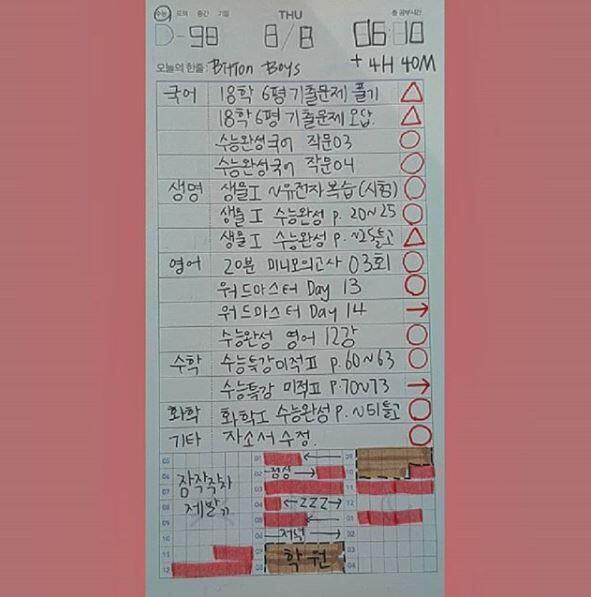 수능 모의 중간 기말 THU 총 공부시간
D-98 8/8 06:10
오늘의 한줄: Bition Boys + 4H 40M
국어 18학 6평 기출문제 풀기 △
18학 6평 기출문제 오답. △
수능완성국어 작문03 ○
수능완성국어 작문04 ○
생명 생물I ~유전자복습(시험) ○
생물I 수능완성 p. 20~25 ○
생물I 수능완성 p. ~25들고 △
영어 20분 미니모의고사 03회 ○
워드마스터 Day 13 ○
워드마스터 Day 14 →
수능완성 영어 12강 ○
수학 수능특강미적II p.60~63 ○
수능특강 미적II p.70~73 →
화학 화학I 수능완성 p. ~51들고 ○
기타 자소서 수정. ○
05 01 ← 09
06 02 점심 → 10
07 03 11
08 04 ← ZZZ → 12
09 05 ← 01
10 06 저녁 → 02
11 07 학원 03
12 04
제발